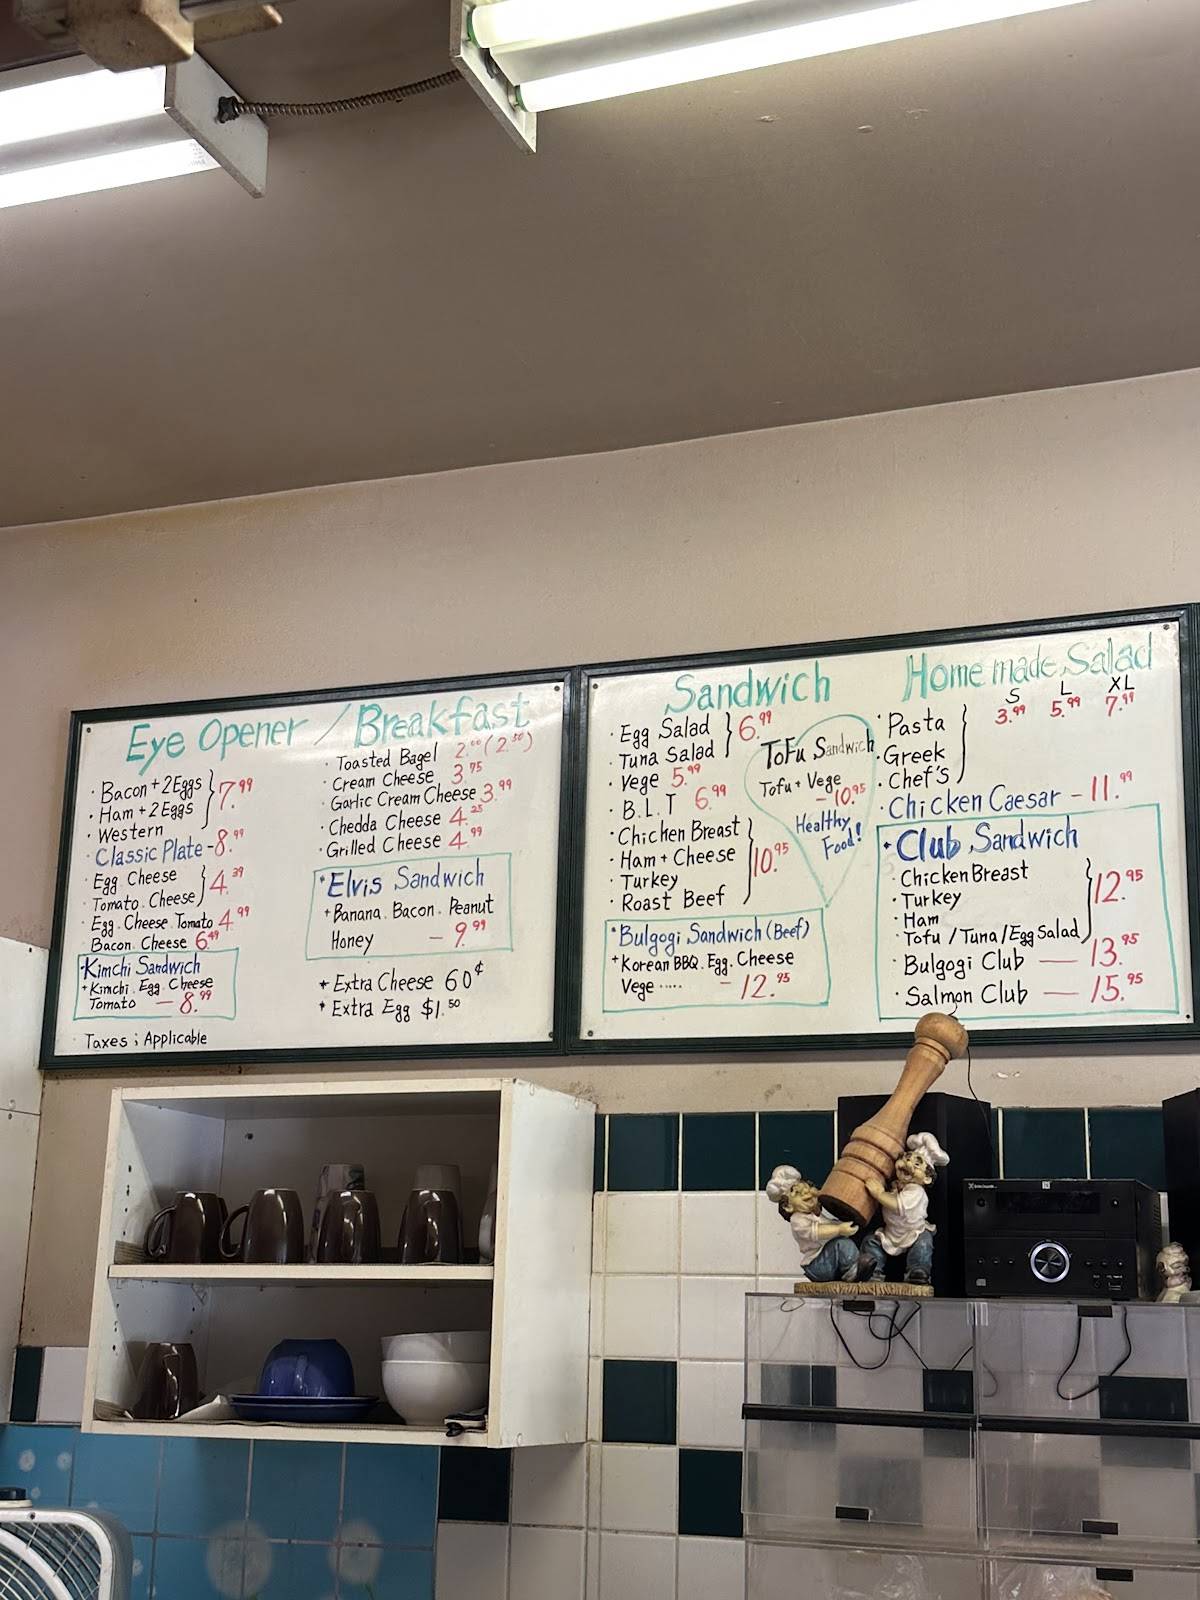 Eye Opener / Breakfast
· Bacon + 2 Eggs
· Ham + 2 Eggs } 7.99
· Western
· Classic Plate - 8.99
· Egg Cheese
· Tomato. Cheese } 4.39
· Egg. Cheese Tomato 4.99
Bacon. Cheese 6.49
· Kimchi Sandwich
+ Kimchi. Egg. Cheese
Tomato — 8.99
· Taxes ; Applicable
· Toasted Bagel 2.00 (2.50)
· Cream Cheese 3.75
· Garlic Cream Cheese 3.99
· Chedda Cheese 4.25
· Grilled Cheese 4.99
* Elvis Sandwich
+ Banana. Bacon. Peanut
Honey — 9.99
+ Extra Cheese 60¢
* Extra Egg $1.50
Sandwich
· Egg Salad
· Tuna Salad } 6.99
· Vege 5.99
· B.L.T 6.99
· Chicken Breast
· Ham + Cheese
· Turkey } 10.95
· Roast Beef
ToFu Sandwich
Tofu + Vege
- 10.95
Healthy
Food!
* Bulgogi Sandwich (Beef)
+ Korean BBQ. Egg. Cheese
Vege ..... - 12.95
Home made Salad
S L XL
· Pasta 3.99 5.99 7.99
· Greek
· Chef's
· Chicken Caesar - 11.99
* Club Sandwich
· Chicken Breast
· Turkey } 12.95
· Ham
· Tofu / Tuna / Egg Salad
· Bulgogi Club — 13.95
· Salmon Club — 15.95